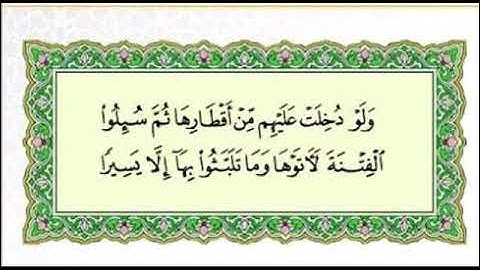 وَلَوۡ دُخِلَتۡ عَلَيۡهِم مِّنۡ أَقۡطَارِهَا ثُمَّ سُئِلُواْ
ٱلۡفِتۡنَةَ لَأٓتَوۡهَا وَمَا تَلَبَّثُواْ بِهَآ إِلَّا يَسِيرٗا